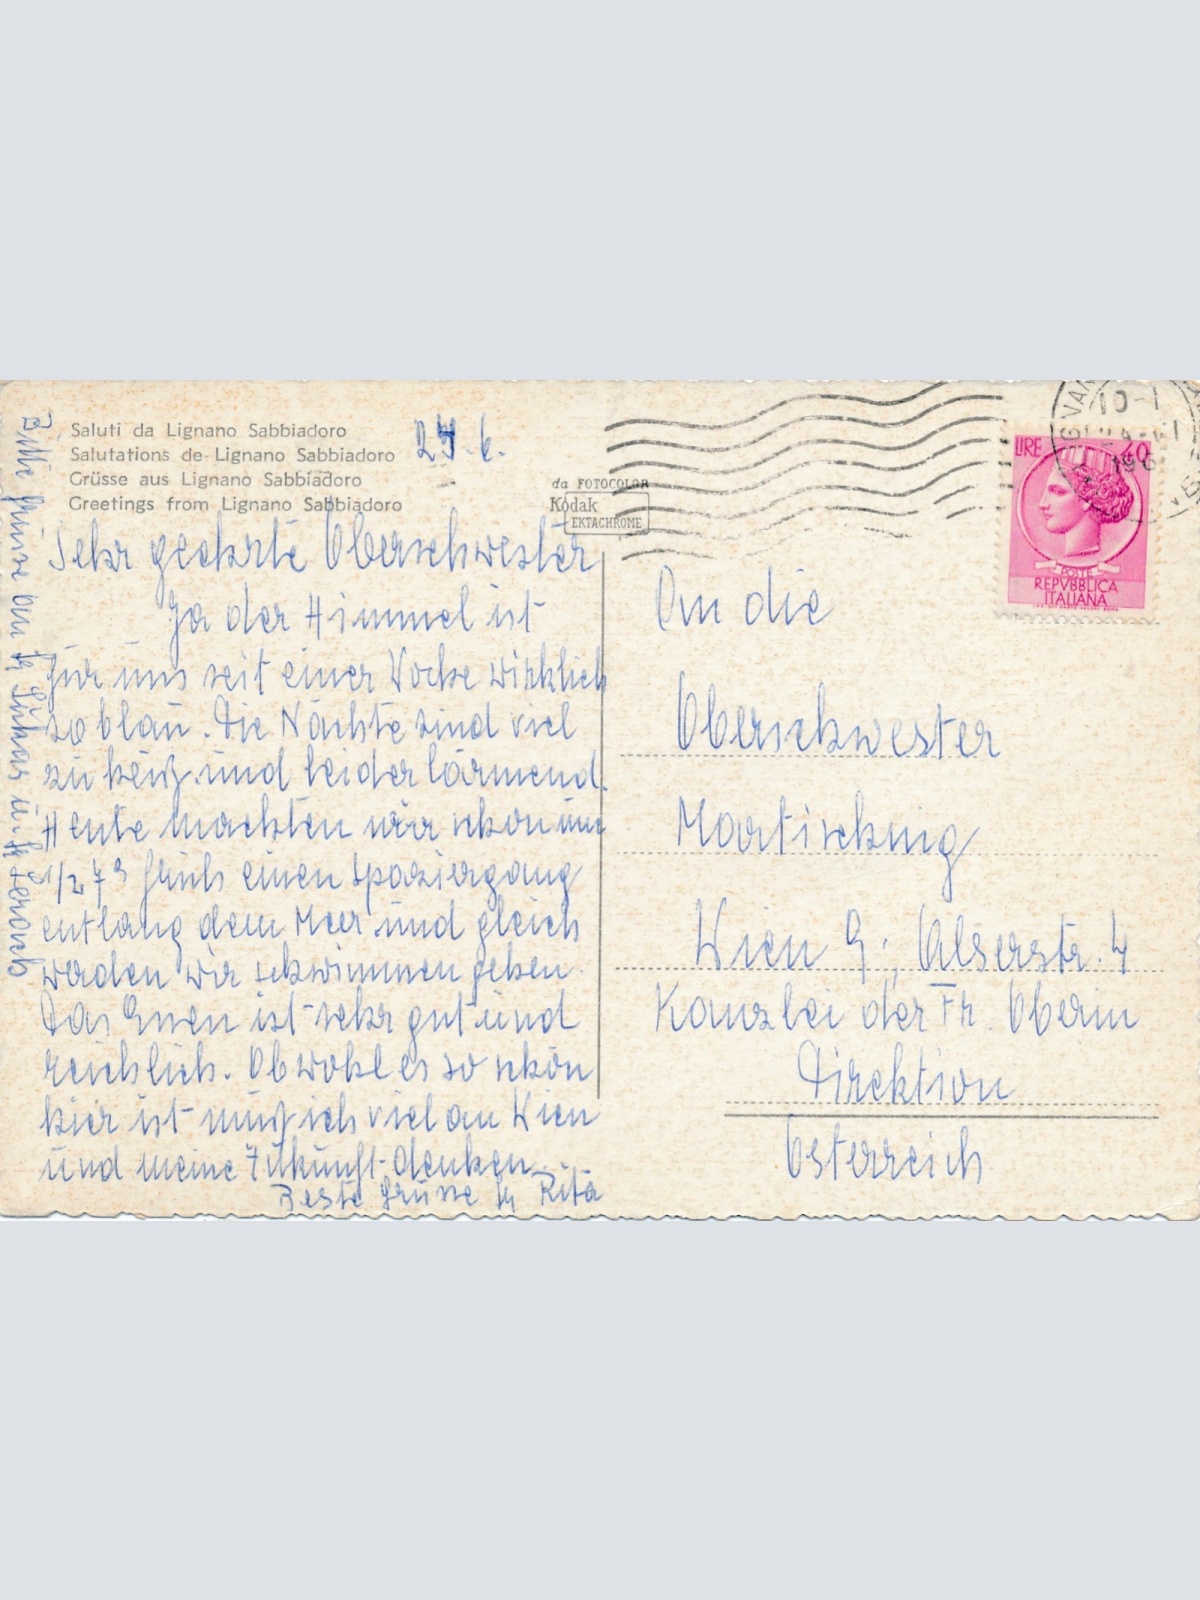 Saluti da Lignano Sabbiadoro
Salutations de Lignano Sabbiadoro
Grüsse aus Lignano Sabbiadoro
Greetings from Lignano Sabbiadoro
24.6.
da FOTOCOLOR
Kodak
EKTACHROME
Sehr geehrte Oberschwester
Ja der Himmel ist
für uns seit einer Woche wirklich
so blau. Die Nächte sind viel
zu heiß und leider lärmend.
Heute machten wir schon um
1/2 7h früh einen Spaziergang
entlang dem Meer und gleich
werden wir schwimmen gehen.
Das Essen ist sehr gut und
reichlich. Obwohl es so schön
hier ist muß ich viel an Wien
und meine Zukunft denken.
Beste Grüsse Rita
Bitte Grüsse an Lukas u.
LIRE 40
POSTE
REPVBBLICA
ITALIANA
An die
Oberschwester
Wien 9, Alserstr. 4
Kanzlei der Fr. Oberin
Direktion
Österreich